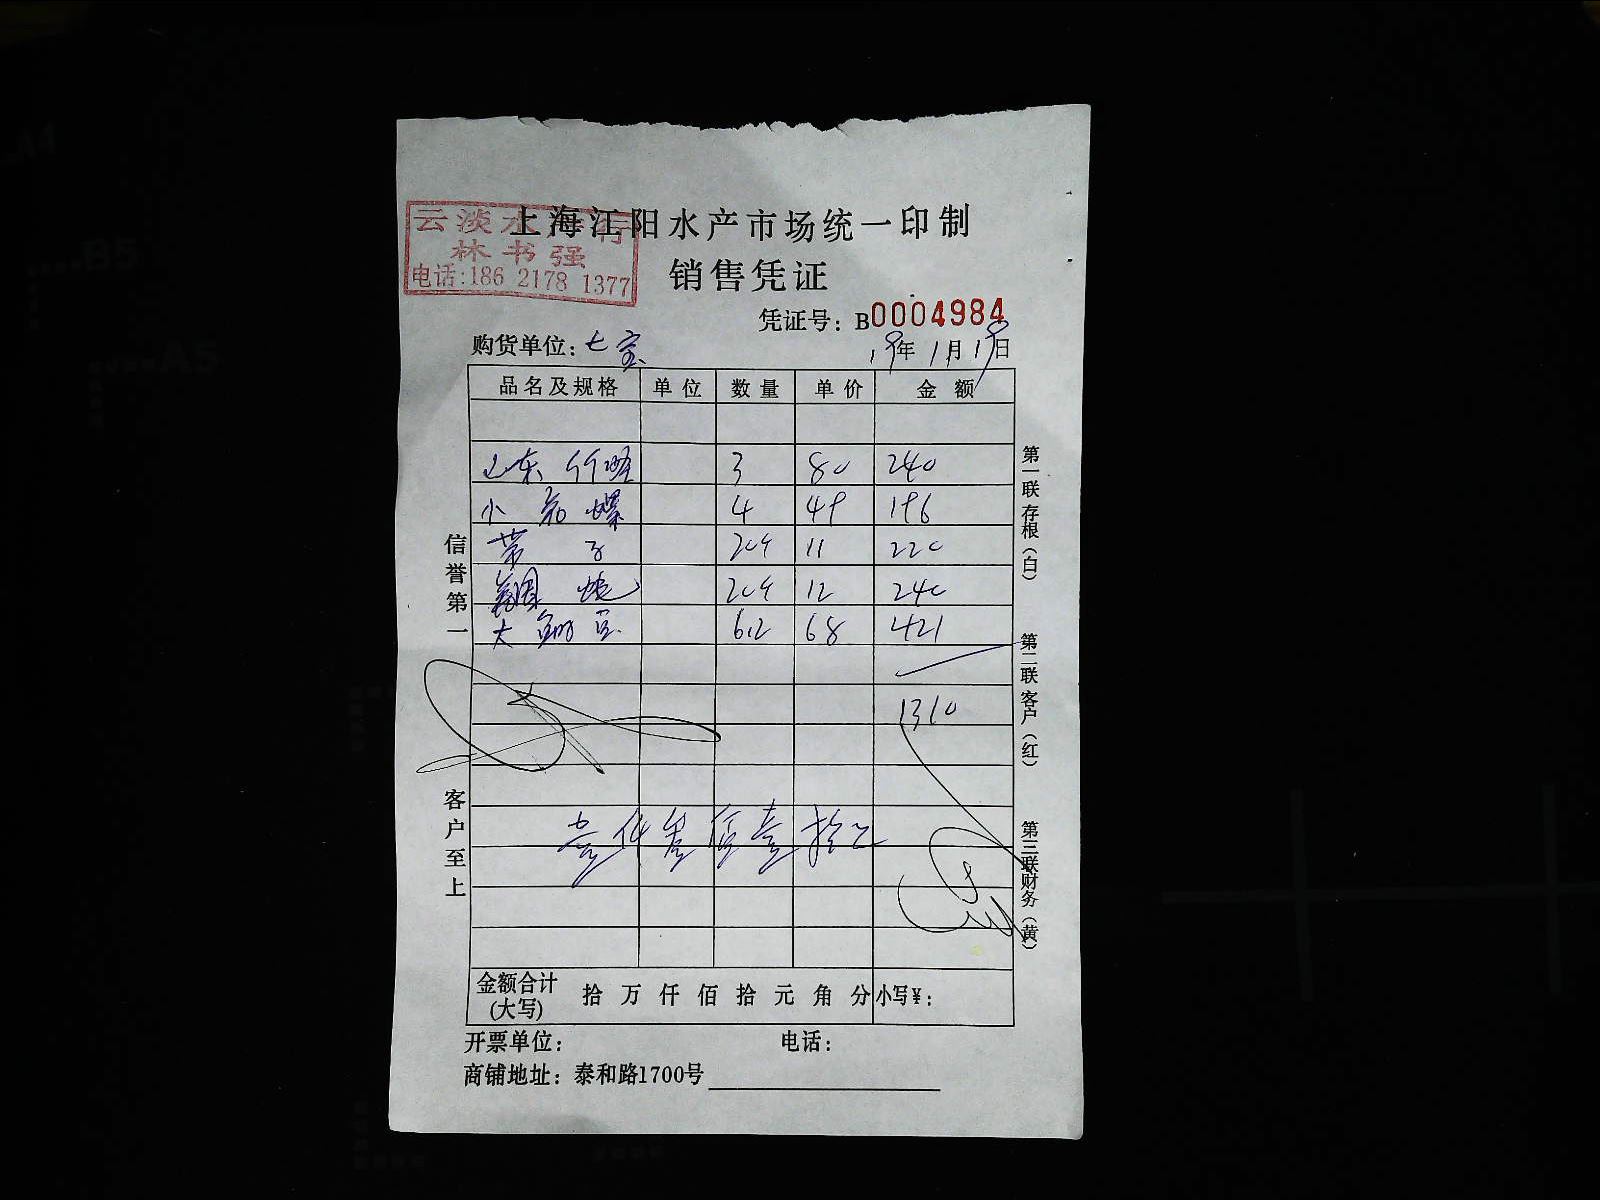 上海江阳水产市场统一印制
云淡水产行
林书强
电话:186 2178 1377
销售凭证
凭证号: B0004984
购货单位: 七宝 19年1月19日
品名及规格 单位 数量 单价 金额
山东竹蛏 3 80 240
小花螺 4 49 196
带子 20个 11 220
鲍 20个 12 240
大 6.2 68 421
1310
壹仟叁佰壹拾元
金额合计 (大写) 拾 万 仟 佰 拾 元 角 分 小写¥:
开票单位: 电话:
商铺地址: 泰和路1700号
信誉第一 客户至上
第一联存根(白) 第二联客户(红) 第三联财务(黄)
A4
B5
A5